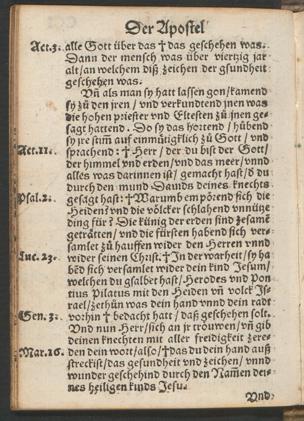 Der Apostel
Act.3. alle Gott über das † das geschehen was.
Dann der mensch was über viertzig jar
alt/an welchem diß zeichen der gsundheit
geschehen was.
Vñ als man sy hatt lassen gon/kamend
sy zů den jren / vnd verkundtend jnen was
die hohen priester vnd Eltesten zů jnen ge-
sagt hattend. Do sy das hortend / hůbend
sy jre stim̃ auf einmůtigklich zů Gott / vnd
Act.11. sprachend: † Herr / der du bist der Gott/
der himmel vnd erden/vnd das meer/vnnd
alles was darinnen ist/ gemacht hast/ d̕ du
durch den mund Dauids deines knechts
Psal.2. gesagt hast: † Warumb empörend sich die
Heiden? vnd die völcker schlahend vnnütze
ding für? Die künig der erden sind zesamẽ
getrãtten/ vnd die fürsten habend sich ver-
samlet zů hauffen wider den Herren vnnd
Luc. 23. wider seinen Christ. † In der warheit / sy ha
bẽd sich versamlet wider dein kind Jesum/
welchen du gsalbet hast / Herodes vnd Pon
tius Pilatus mit den Heiden vñ volck Jß-
rael/zethůn was dein hand vnnd dein radt
Gen. 3. vorhin † bedacht hatt / daß geschehen solt.
Vnd nun Herr/sich an jr tröuwen/ vñ gib
deinen knechten mit aller freidigkeit zere-
Mar.16. den dein wort/also/ † das du dein hand auß
streckist/das gesundheit vnd zeichen/ vnnd
wunder geschehind durch den Nam̃en dei-
nes heiligen kinds Jesu.
Vnd